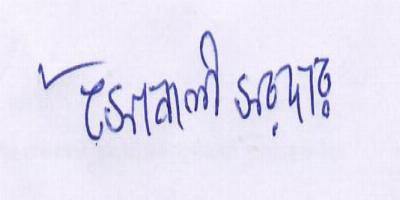 সোনালী সরদার